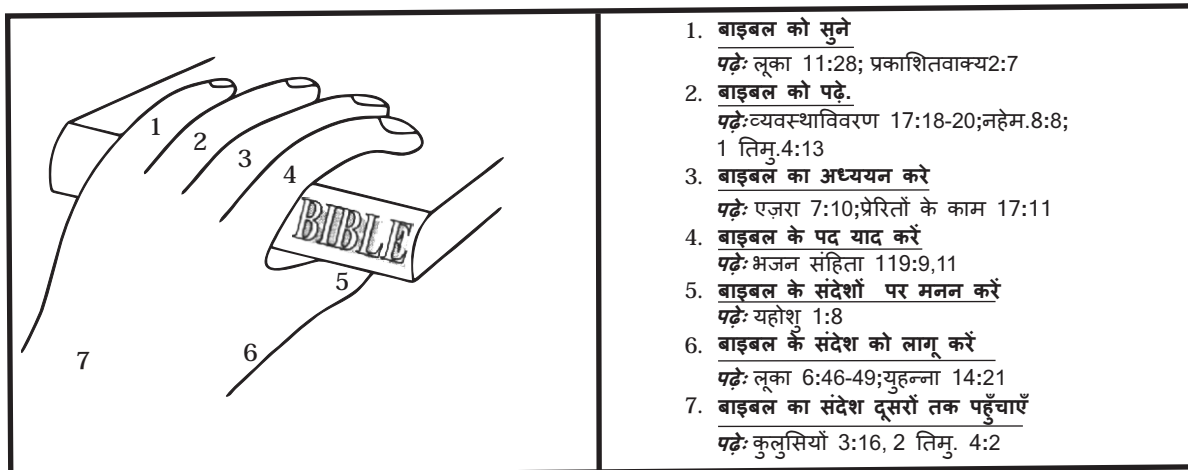 1
2
3
4
BIBLE
5
6
7
1. बाइबल को सुने
पढ़ेः लूका 11:28; प्रकाशितवाक्य2:7
2. बाइबल को पढ़े.
पढ़ेः व्यवस्थाविवरण 17:18-20;नहेम.8:8;
1 तिमु.4:13
3. बाइबल का अध्ययन करे
पढ़ेः एज़रा 7:10;प्रेरितों के काम 17:11
4. बाइबल के पद याद करें
पढ़ेः भजन संहिता 119:9,11
5. बाइबल के संदेशों पर मनन करें
पढ़ेः यहोशु 1:8
6. बाइबल के संदेश को लागू करें
पढ़ेः लूका 6:46-49;युहन्ना 14:21
7. बाइबल का संदेश दूसरों तक पहुँचाएँ
पढ़ेः कुलुसियों 3:16, 2 तिमु. 4:2